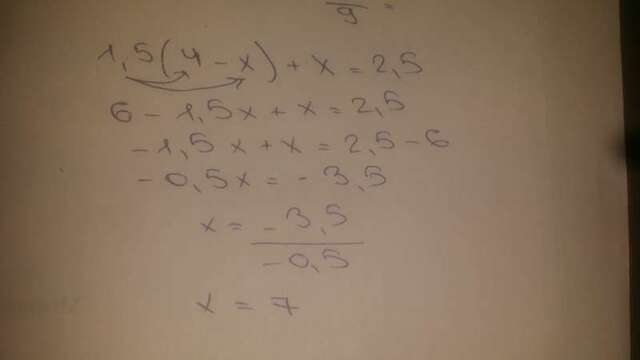 9 =
1,5(4 - x) + x = 2,5
6 - 1,5x + x = 2,5
-1,5x + x = 2,5 - 6
-0,5x = -3,5
x = -3,5
-0,5
x = 7